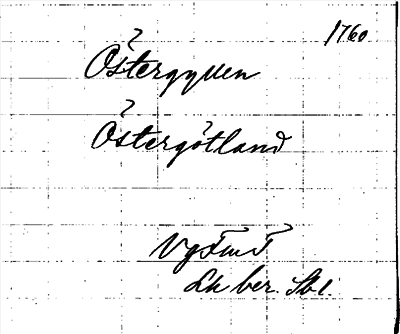 1760
Östergyllen
Östergötland
Lh ber. Sbl.